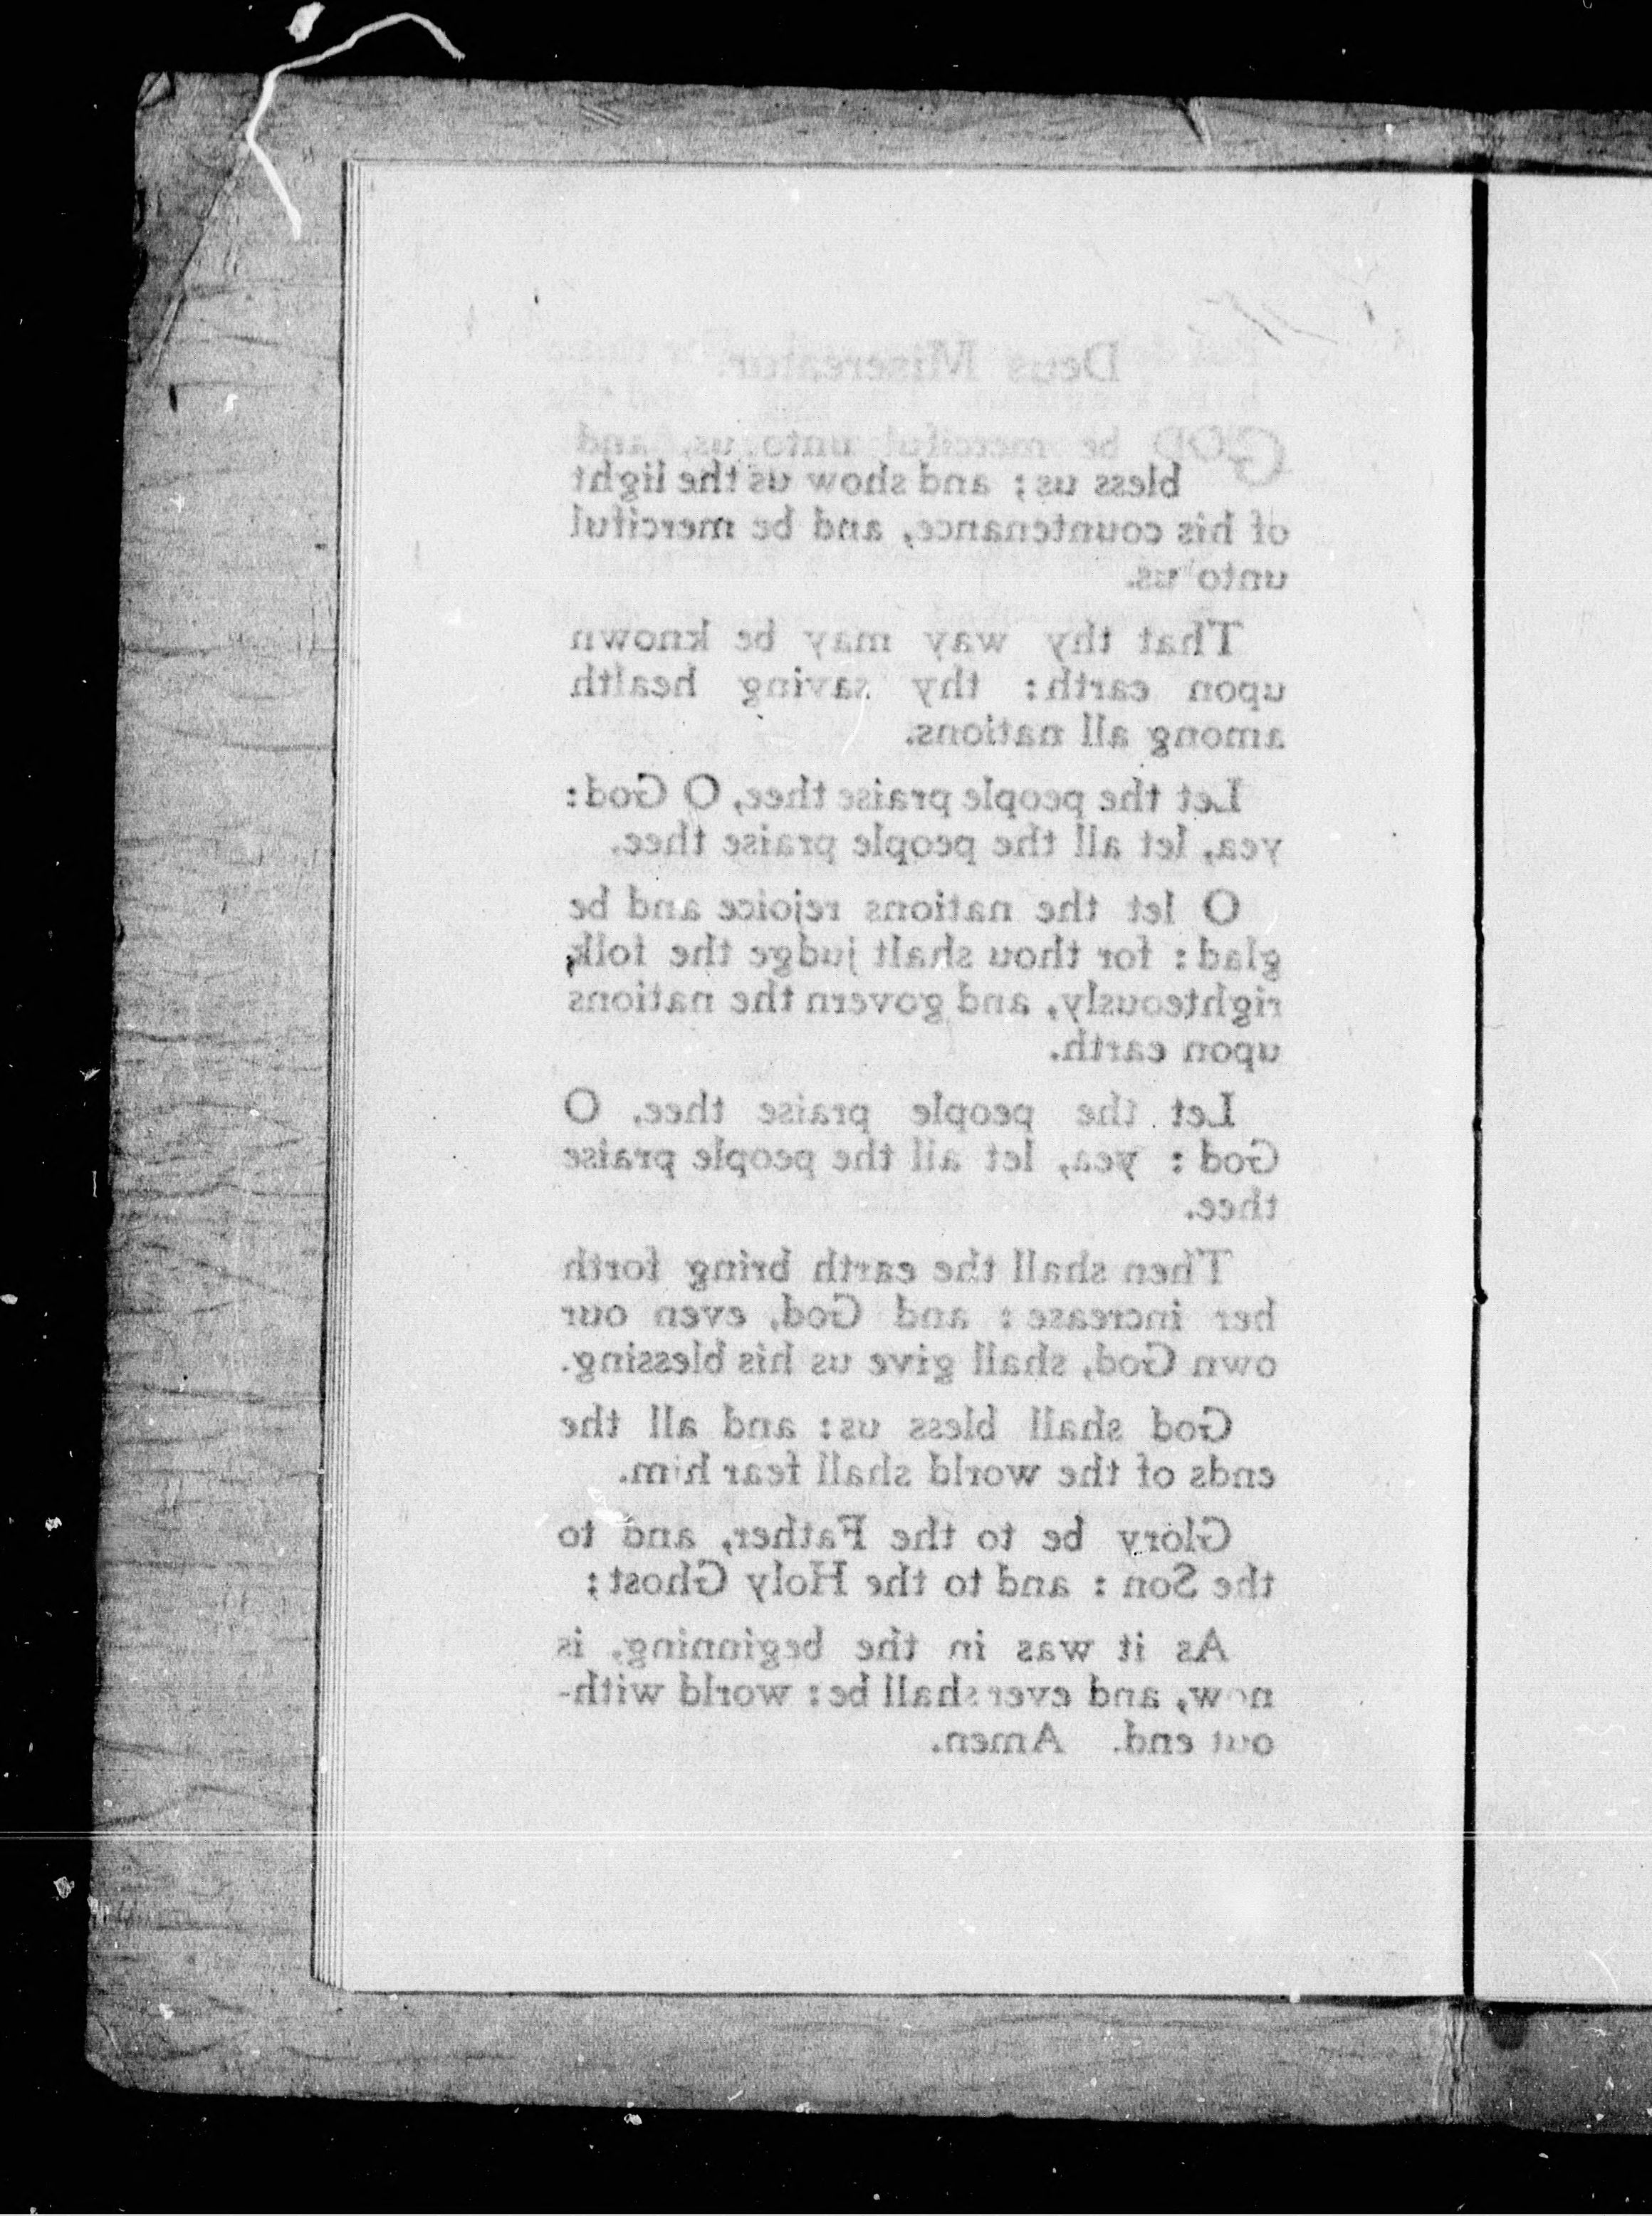 Deus Misereatur.
GOD be merciful unto us, and
bless us; and show us the light
of his countenance, and be merciful
unto us.
That thy way may be known
upon earth: thy saving health
among all nations.
Let the people praise thee, O God:
yea, let all the people praise thee.
O let the nations rejoice and be
glad: for thou shalt judge the folk
righteously, and govern the nations
upon earth.
Let the people praise thee, O
God: yea, let all the people praise
thee.
Then shall the earth bring forth
her increase: and God, even our
own God, shall give us his blessing.
God shall bless us: and all the
ends of the world shall fear him.
Glory be to the Father, and to
the Son: and to the Holy Ghost;
As it was in the beginning, is
now, and ever shall be: world with-
out end. Amen.